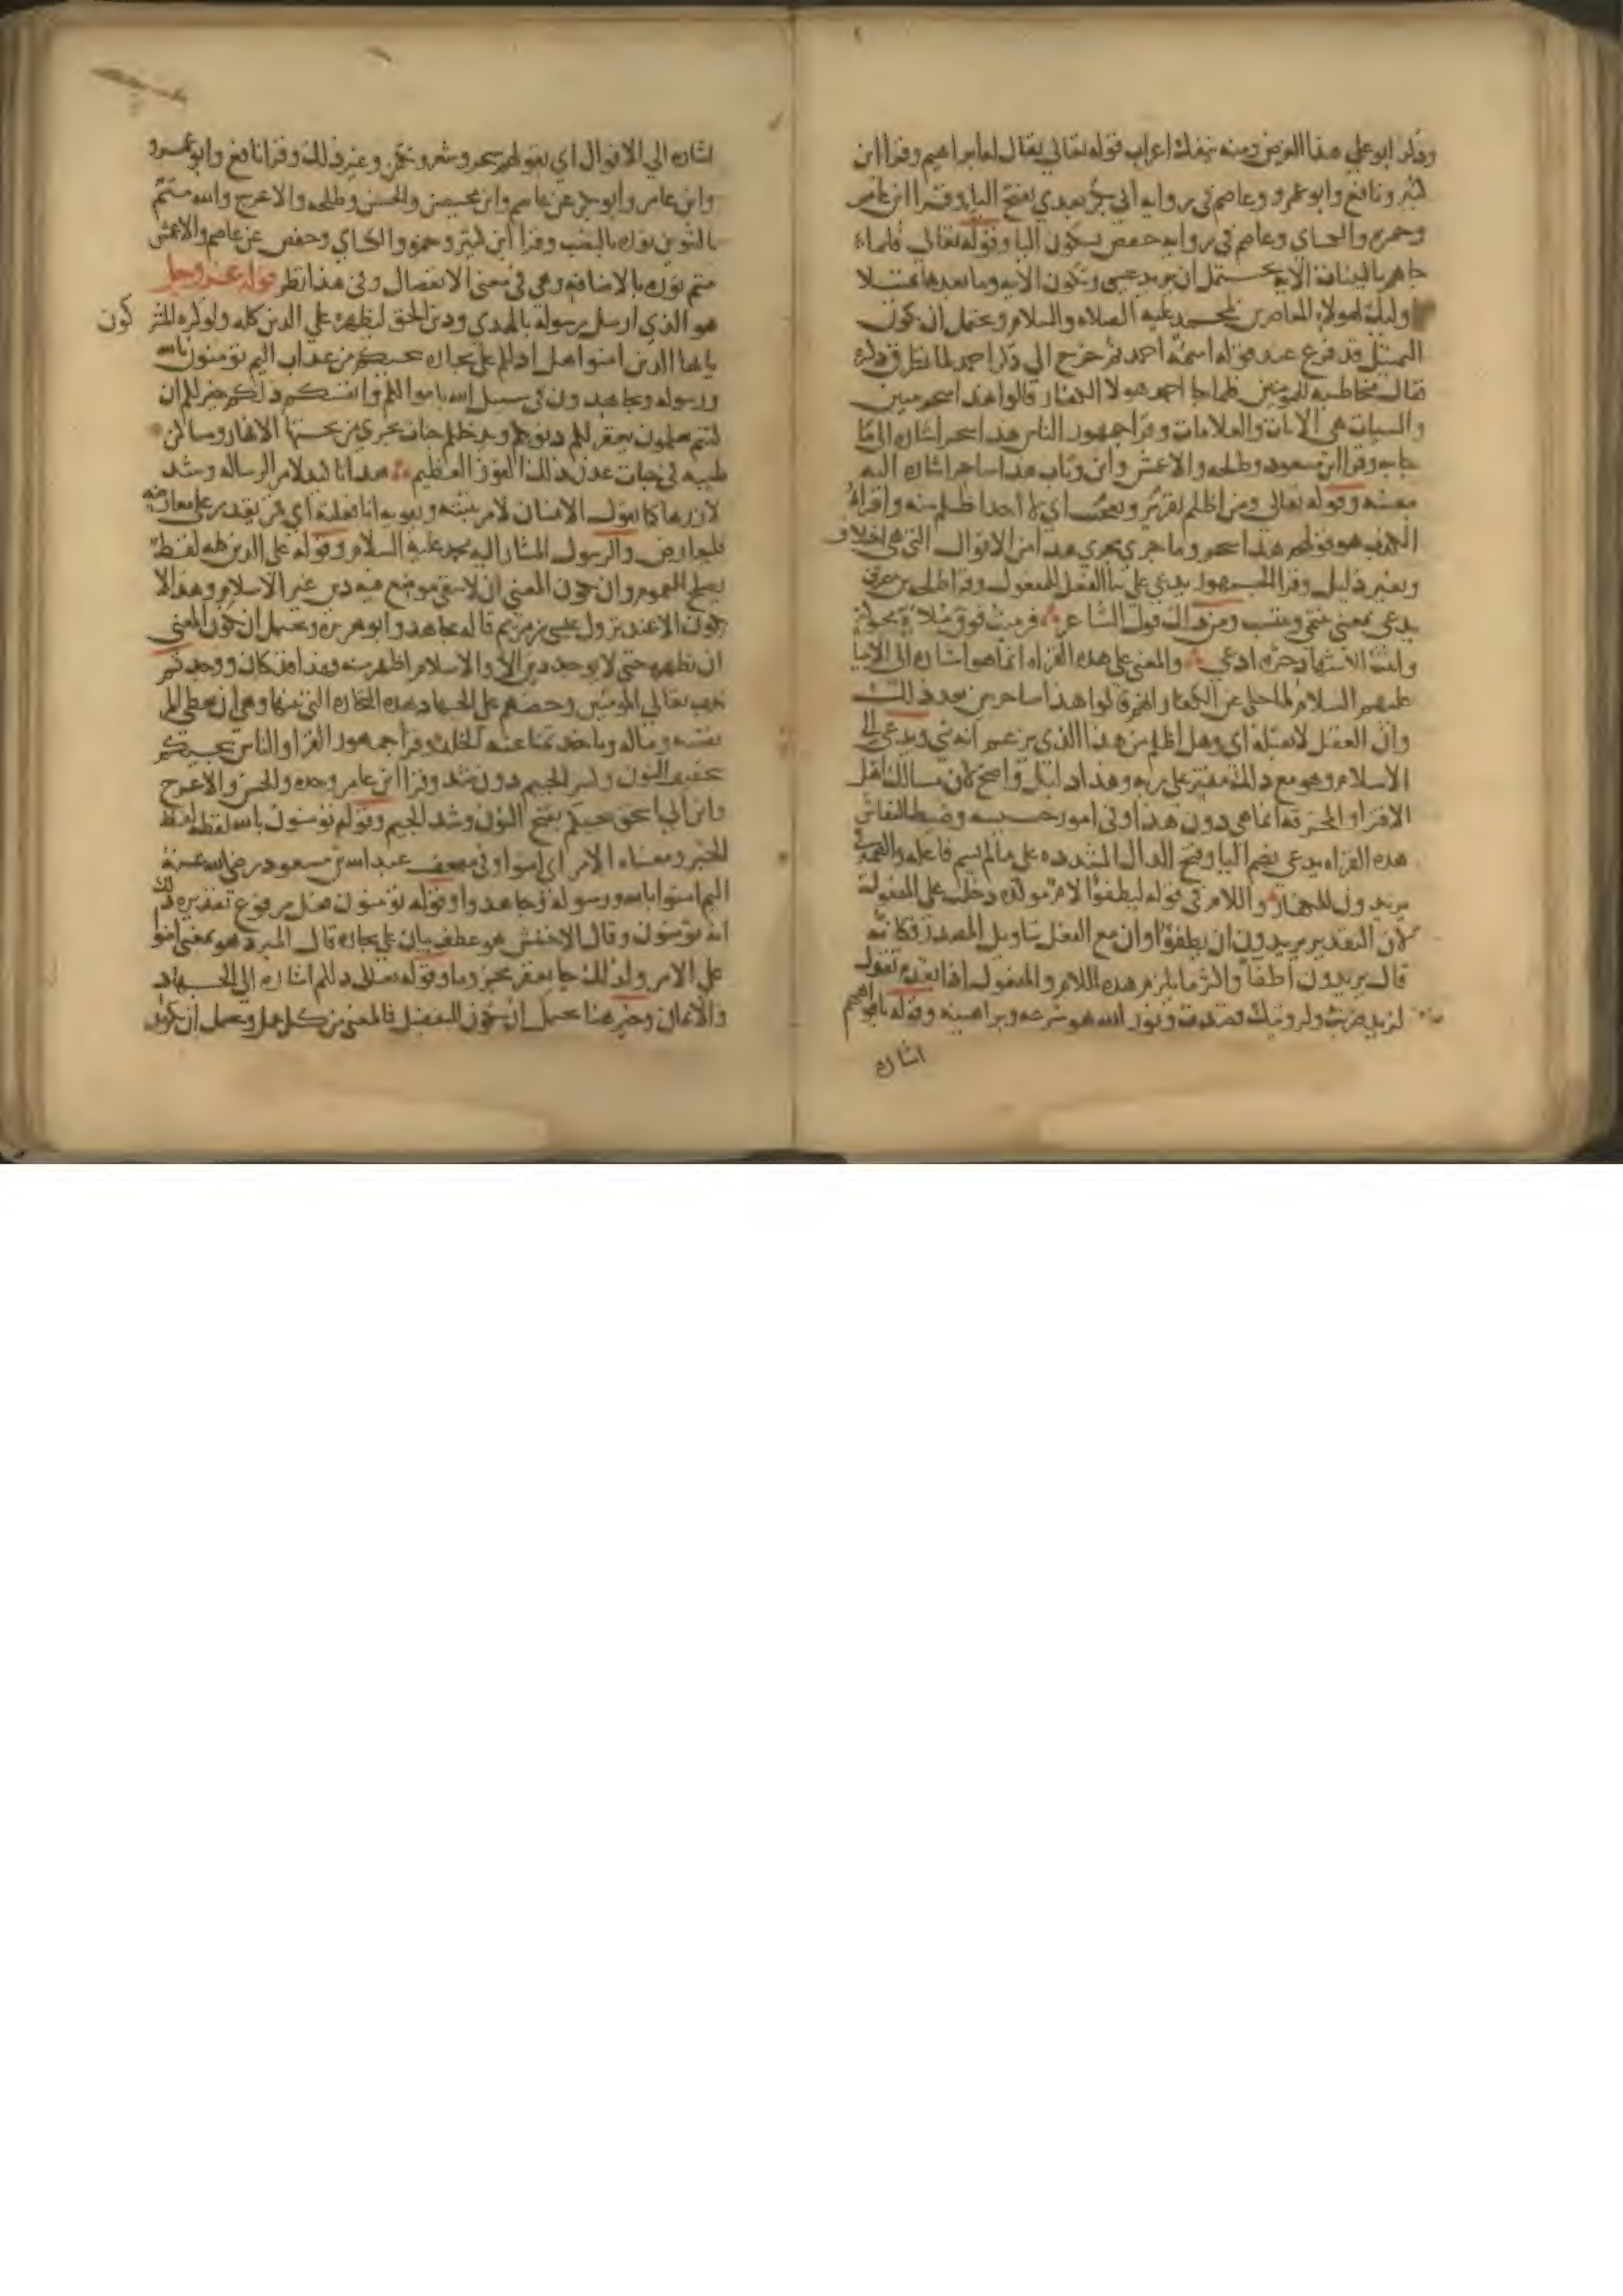 وذكر ابو علي هذا الغرض ومنه ينفك اعراب قوله تعالي يقال له ابراهيم وقرا ابن
كثير ونافع وابو عمرو وعاصم في رواية ابي بكر بعدي بفتح اليا وقرا ابن عامر
وحمزه والكساي وعاصم في روايه حفص بسكون اليا وقوله تعالي فلما
جاهم بالبينات الايه يحتمل ان يريد عيسي وتكون الايه وما بعدها تمثيلا
وليك لهولاء المعاصرين لمحمد عليه الصلاه والسلام ويحتمل ان يكون
التمثيل قد فرغ عند قوله اسمه احمد ثم خرج الي ذكر احمد لما تطرق ذكره
فقال مخاطبه للمومنين فلما جا احمد هولا الكفار قالوا هذا سحر مبين
والبينات هي الايات والعلامات وقرا جمهور الناس هذا سحر اشاره الي ما
جا به وقرا ابن مسعود وطلحه والاعمش وابن وثاب هذا ساحر اشاره اليه
بنفسه وقوله تعالي ومن اظلم تقرير وتعجب اي لا احدا ظلم منه وافتراء
الكذب هو قولهم هذا سحر وما جري مجري هذا من الاقوال التي هي اختلاق
وبغير دليل وقرا الجمهور يدعي علي بنا الفعل للمفعول وقرا طلحه بن مصرف
يدعي بمعني ينتمي وينتسب ومن ذلك قول الشاعر فرميت فوق ملاة محبوكة
وابنت الاشهاد حزه ادعي والمعني علي هذه القراه انما هو اشاره الي الانبيا
عليهم السلام لما حكي عن الكفار انهم قالوا هذا ساحر بين بعد ذلك
وان العقل لا يقبله اي وهل اظلم من هذا الذي يزعم انه نبي ويدعي الي
الاسلام وهو مع ذلك مفتر علي ربه وهذا دليل واضح لان مسالك اهل
الافترا والمخرقه انما هي دون هذا وفي امور خسيسه وضبط النقاش
هذه القراه يدعي بضم اليا وفتح الدال المشدده علي ما لم يسم فاعله والضمير في
يريدون للكفار واللام في قوله ليطفئوا لام موكده دخلت علي المفعول
لان التقدير يريدون ان يطفئوا وان مع الفعل بتاويل المصدر فكانه
قال يريدون اطفا واكثر ما تلزم هذه اللام المفعول اذا تقدم تقول
لزيد ضربت ولرويتك قصدت ونور الله هو شرعه وبراهينه وقوله بافواههم
اشاره
اشاره الي الاقوال اي بقولهم سحر وشعر وتكهن وغير ذلك وقرا نافع وابو عمرو
وابن عامر وابو بكر عن عاصم وابن محيصن والحسن وطلحه والاعرج والله متم
بالتنوين نوره بالنصب وقرا ابن كثير وحمزه والكساي وحفص عن عاصم والاعمش
متم نوره بالاضافه وهي في معني الانفصال وفي هذا نظر قوله عز وجل
هو الذي ارسل رسوله بالهدي ودين الحق ليظهره علي الدين كله ولو كره المشركون
يا ايها الذين امنوا هل ادلكم علي تجاره تنجيكم من عذاب اليم تومنون بالله
ورسوله وتجاهدون في سبيل الله باموالكم وانفسكم ذلكم خير لكم ان
كنتم تعلمون يغفر لكم ذنوبكم ويدخلكم جنات تجري من تحتها الانهار ومساكن
طيبه في جنات عدن ذلك الفوز العظيم هذا تاكيد لامر الرساله وشد
لازرها كما يقول الانسان لامر يثبته ويقويه انا فعلته اي فمن يقدر علي معارضته
فليعارض والرسول المشار اليه محمد عليه السلام وقوله علي الدين كله لفظ
يصلح للعموم وان يكون المعني ان لا يبقي موضع فيه دين غير الاسلام وهذا لا
يكون الا عند نزول عيسي بن مريم قاله مجاهد وابو هريره ويحتمل ان يكون المعني
ان يظهره حتي لا يوجد دين الا والاسلام اظهر منه وهذا قد كان ووجد ثم
ندب تعالي المومنين وحضهم علي الجهاد بهذه التجاره التي بينها وهي ان يعطي المرء
نفسه وماله وياخذ ثمنا جنه الخلد وقرا جمهور القرا والناس تنجيكم
بتخفيف النون وكسر الجيم دون شد وقرا ابن عامر وحده والحسن والاعرج
وابن ابي اسحق تنجيكم بفتح النون وشد الجيم وقوله تومنون بالله لفظه لفظ
الخبر ومعناه الامر اي امنوا وفي مصحف عبد الله بن مسعود رضي الله عنه
اليم امنوا بالله ورسوله وجاهدوا وقوله تومنون فعل مرفوع تقديره ذلك
انه تومنون وقال الاخفش هو عطف بيان علي تجاره قال المبرد هو بمعني امنوا
علي الامر ولذلك جا يغفر مجزوما وقوله تعالي ذلكم اشاره الي الجهاد
والايمان وخير هنا يحتمل ان يكون للتفضيل فالمعني من كل عمل ويحتمل ان يكون